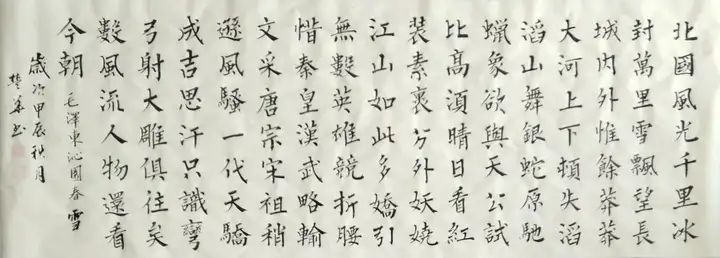 北國風光千里冰
封萬里雪飄望長
城內外惟餘莽莽
大河上下頓失滔
滔山舞銀蛇原馳
蠟象欲與天公試
比高須晴日看紅
裝素裹分外妖嬈
江山如此多嬌引
無數英雄競折腰
惜秦皇漢武略輸
文采唐宗宋祖稍
遜風騷一代天驕
成吉思汗只識彎
弓射大雕俱往矣
數風流人物還看
今朝 毛澤東沁園春雪
歲次甲辰秋月